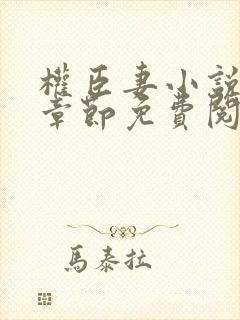 權臣妻小説
章節免費閱
馬泰拉